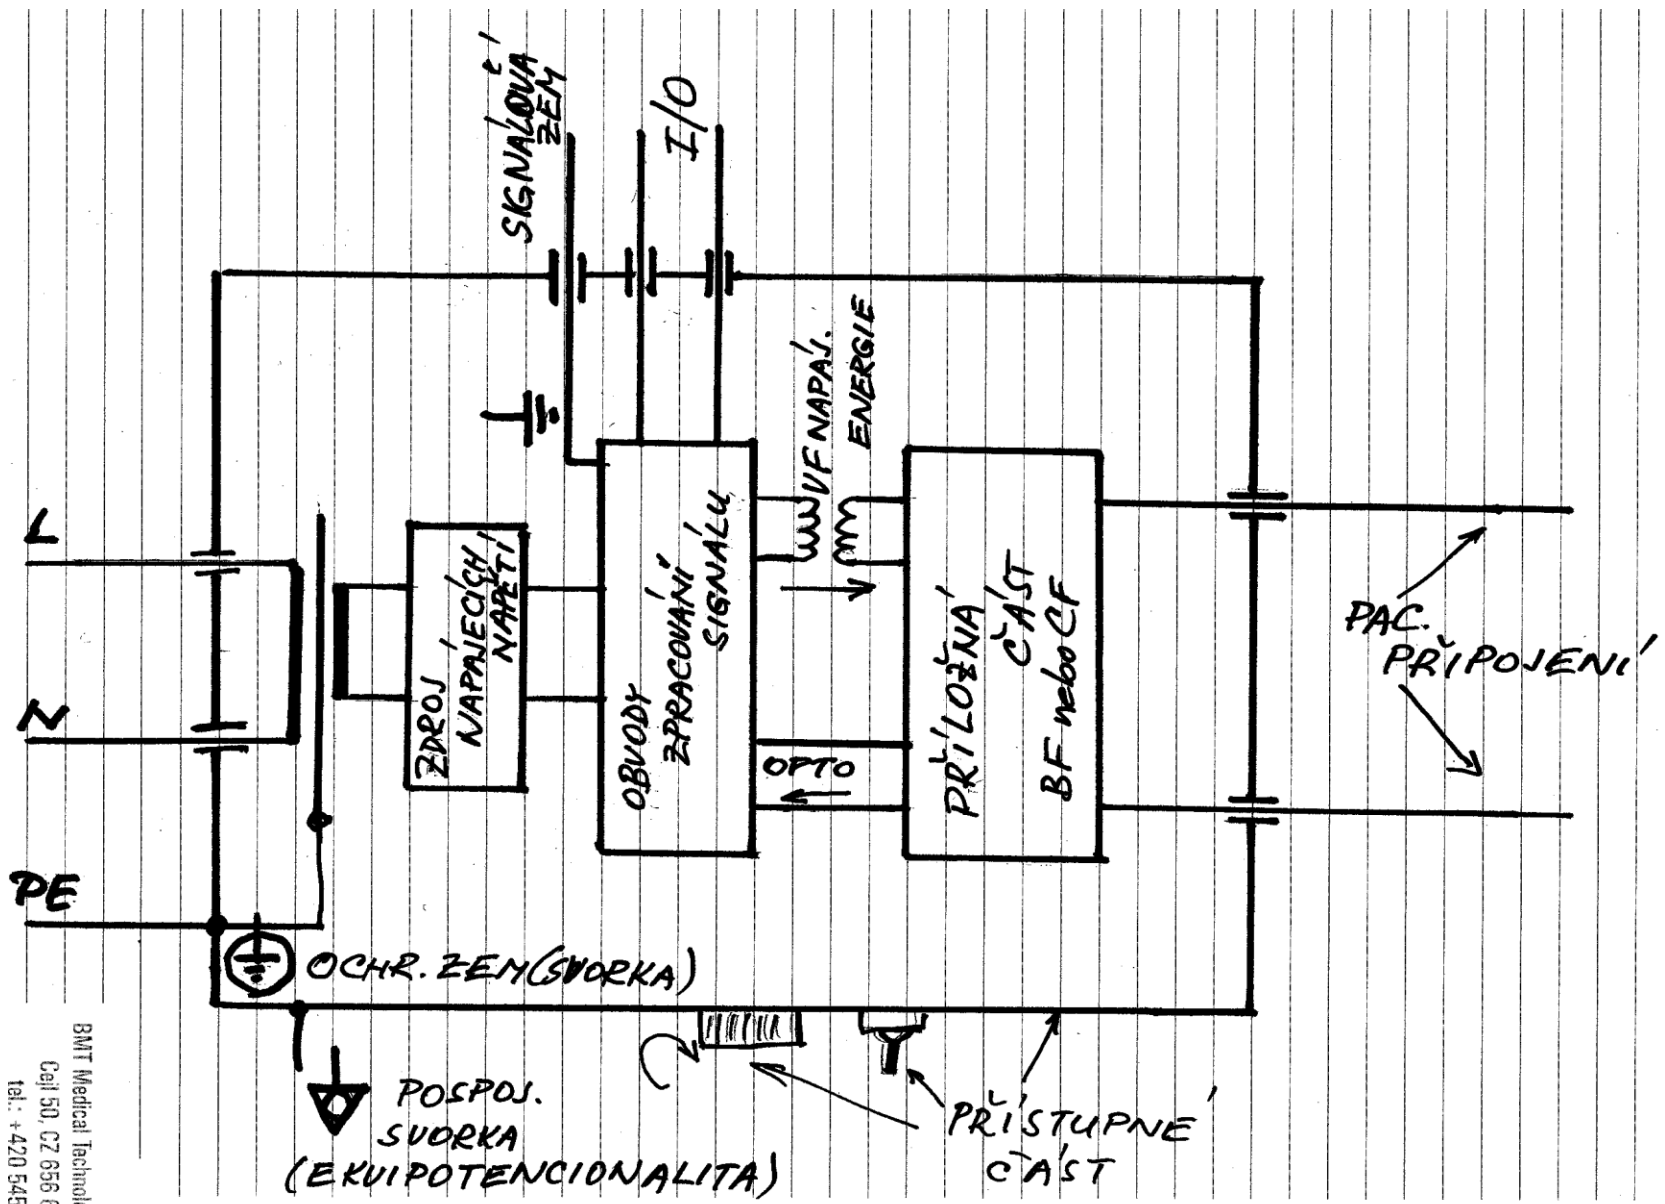 SIGNÁLOVÁ
ZEM
I/O
VF NAPÁJ.
ENERGIE
L
N
PE
ZDROJ
NAPÁJECÍCH
NAPĚTÍ
OBVODY
ZPRACOVÁNÍ
SIGNÁLU
OPTO
PŘÍLOŽNÁ
ČÁST
BF nebo CF
PAC.
PŘIPOJENÍ
OCHR. ZEM (SVORKA)
POSPOJ.
SVORKA
(EKVIPOTENCIONALITA)
PŘÍSTUPNÉ
ČÁST
BMT Medical Technol
Cejl 50, CZ 656
tel.: +420 545